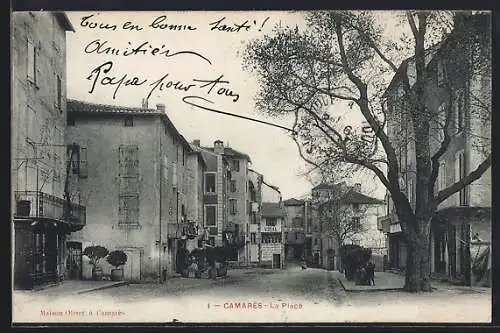 Tous en bonne santé!
Amitiés
Papa pour tous
VIDAL
1 - CAMARÈS - La Place
Maison Oliret, à Camarès